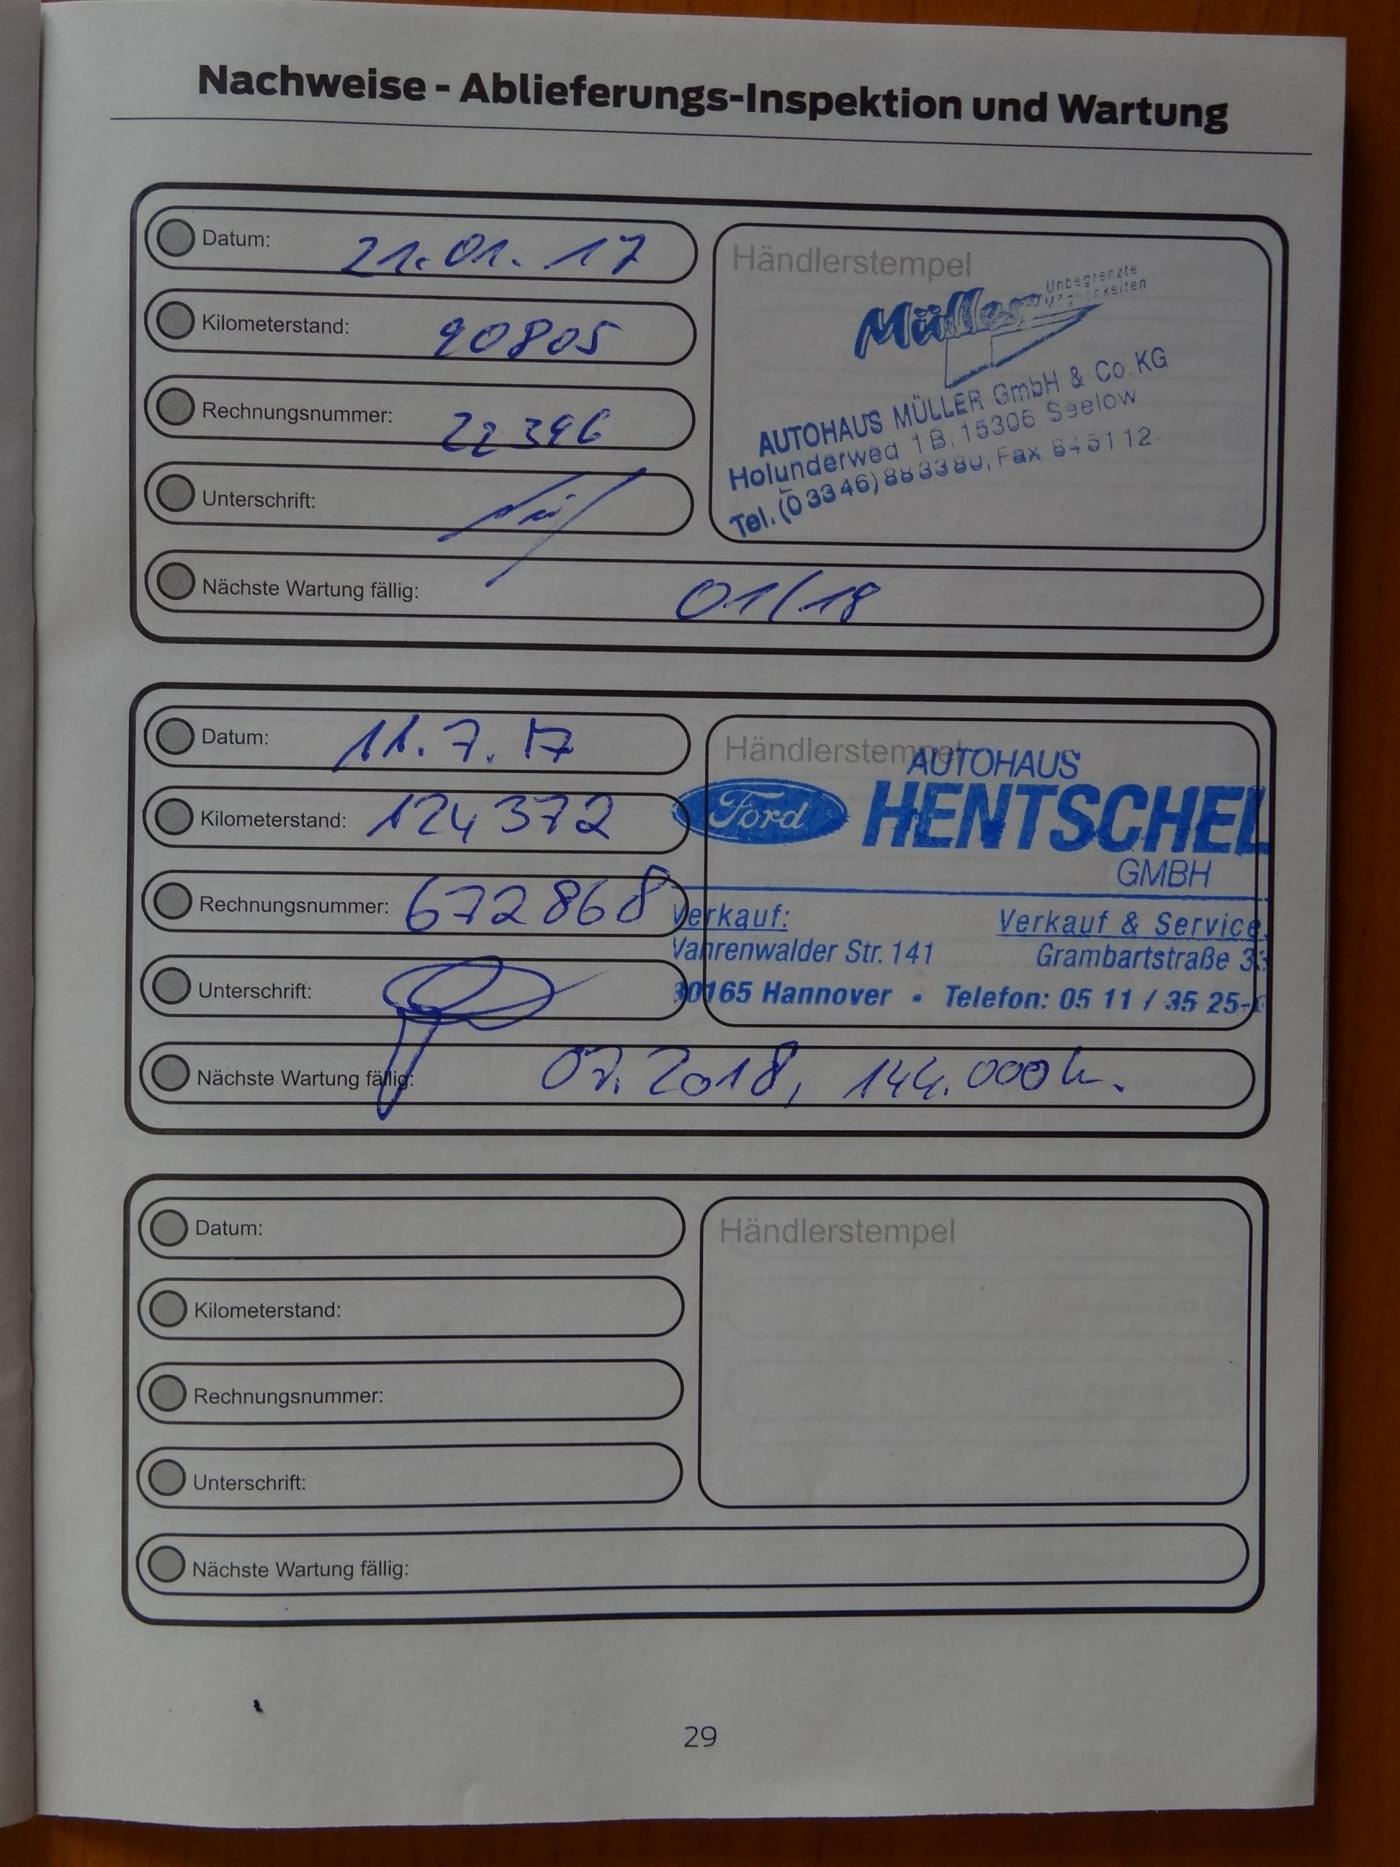 Nachweise - Ablieferungs-Inspektion und Wartung
Datum: 21.01.17
Kilometerstand: 90805
Rechnungsnummer: 22396
Unterschrift:
Nächste Wartung fällig: 01/18
Händlerstempel
Müller
Unbegrenzte
AUTOHAUS MÜLLER GmbH & Co. KG
Holunderweg 1B, 15306 Seelow
Tel. (03346) 883380, Fax 845112
Datum: 11.7.17
Kilometerstand: 124372
Rechnungsnummer: 672868
Unterschrift:
Nächste Wartung fällig: 07.2018, 144.000
Händlerstempel
AUTOHAUS
Ford HENTSCHEL
GMBH
Verkauf: Verkauf & Service
Vahrenwalder Str. 141 Grambartstraße
30165 Hannover • Telefon: 05 11 / 35 25-
Datum:
Kilometerstand:
Rechnungsnummer:
Unterschrift:
Nächste Wartung fällig:
Händlerstempel
29